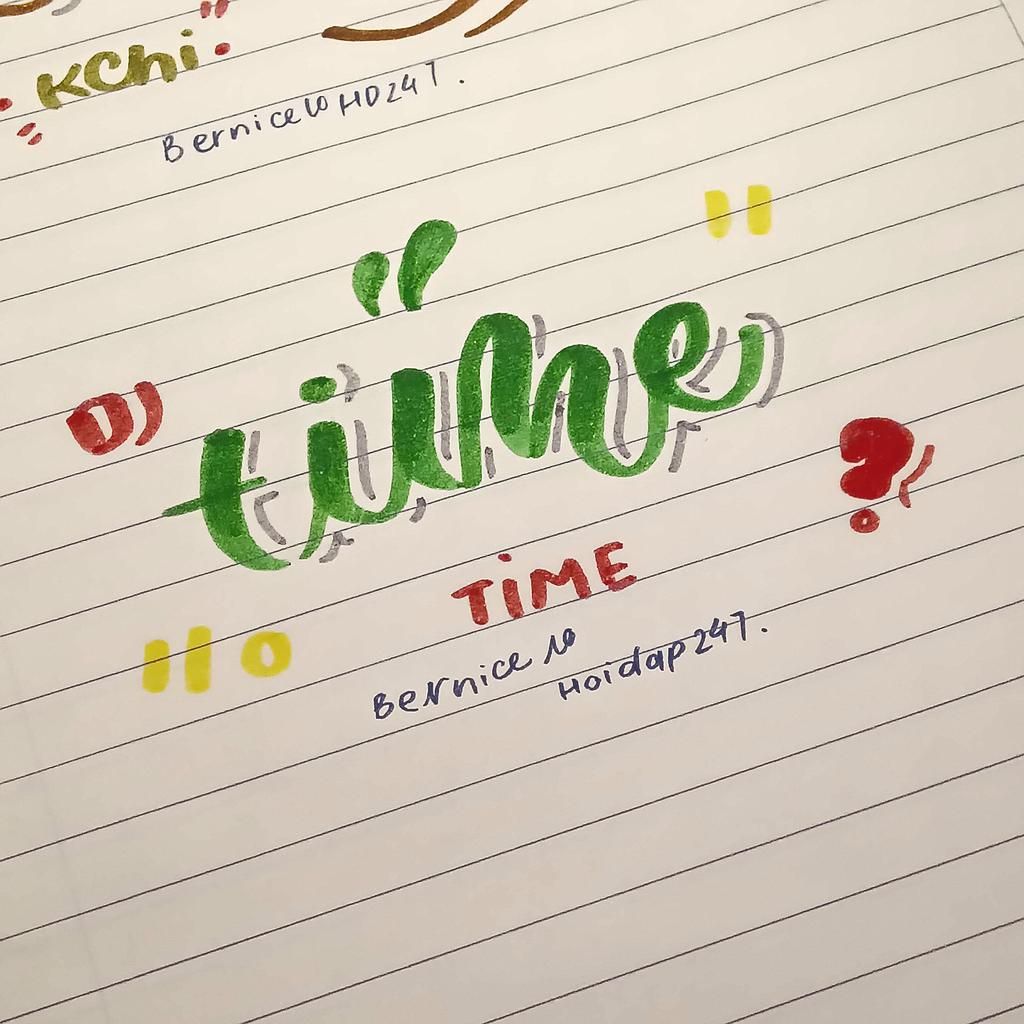 KChi
Bernice lo HD247.
time
?
TiME
Bernice lo
Hoidap247.